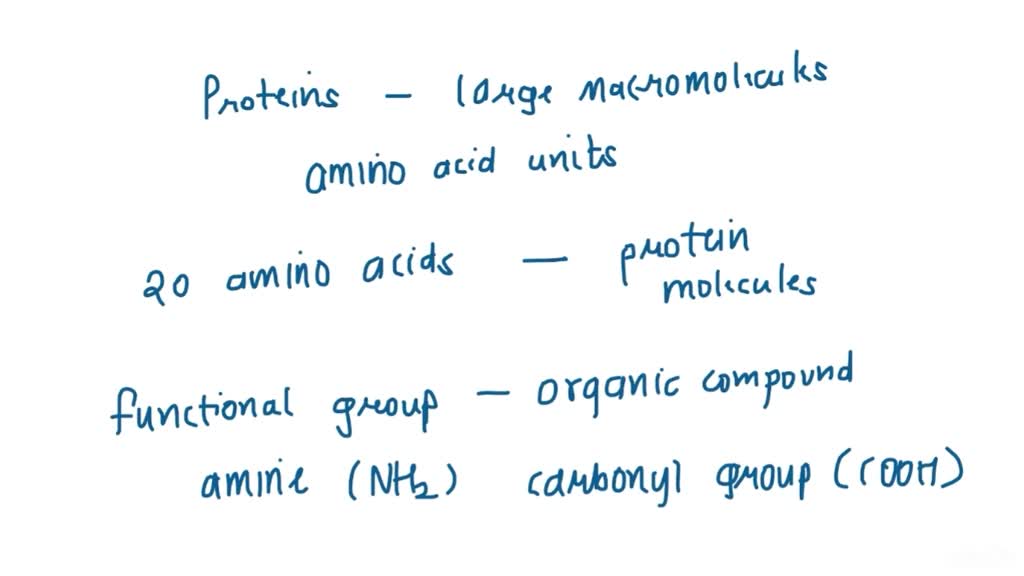 Proteins - large macromolecules
amino acid units
20 amino acids - protein
molecules
functional group - organic compound
amine (NH2) carbonyl group (COOH)